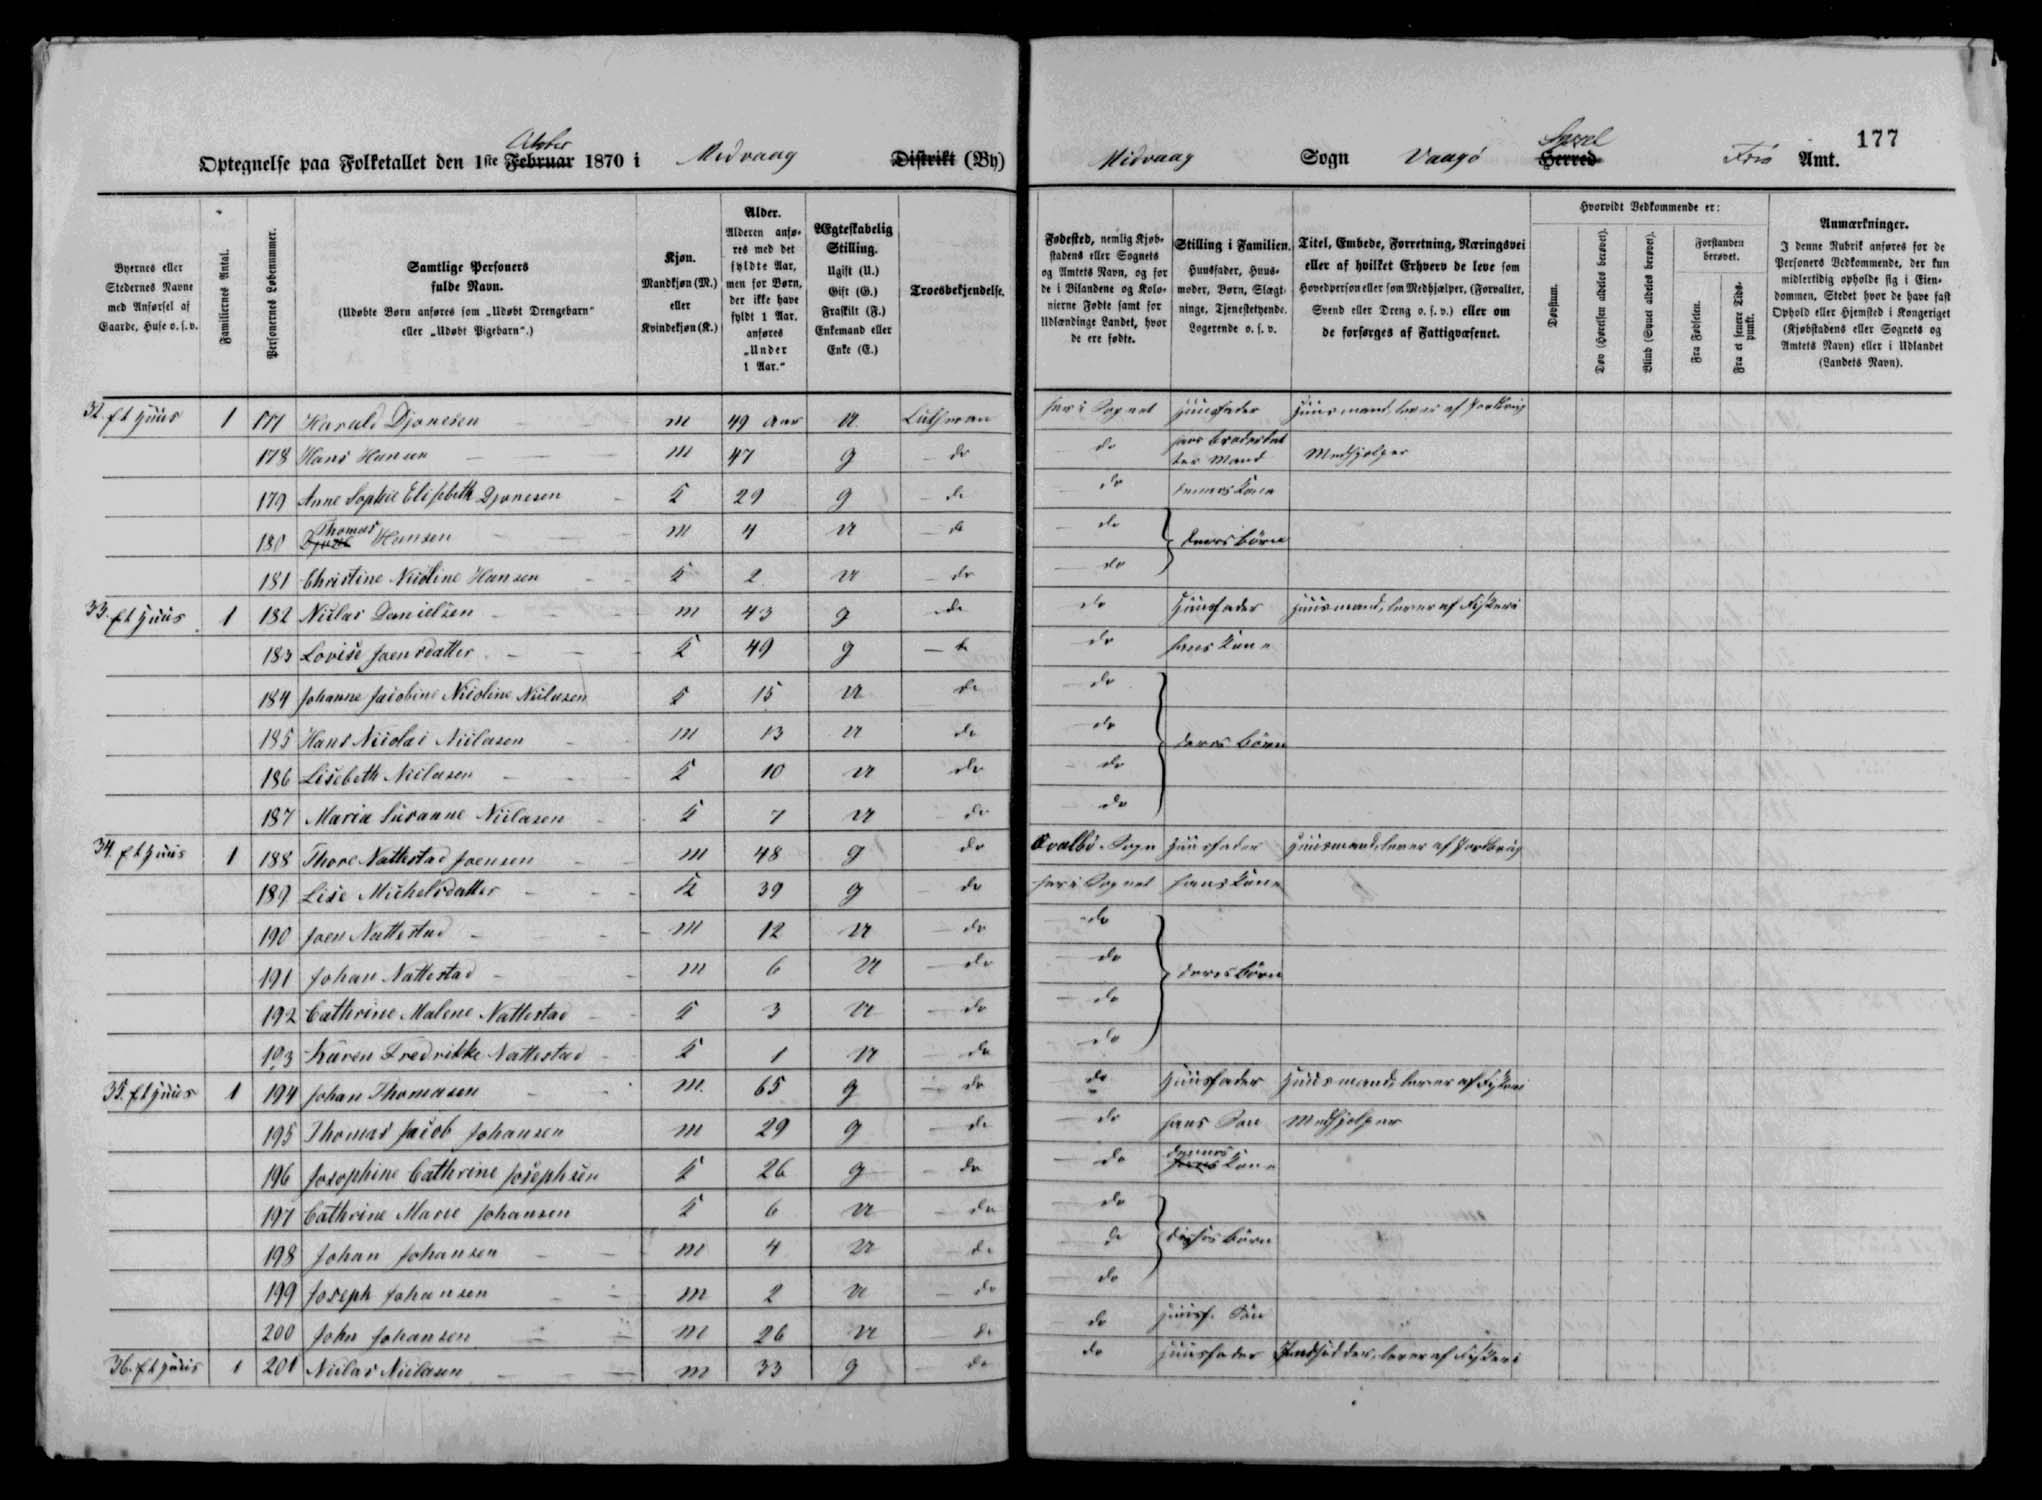 177
Optegnelse paa Folketallet den 1ste Februar October 1870 i Midvaag Distrikt (By)
Midvaag Sogn Vaagö Herred Syssel Færö Amt.
Byernes eller Stedernes Navne med Anførsel af Gaarde, Huse o. s. v.
Familiernes Antal.
Personernes Løbenummer.
Samtlige Personers fulde Navn.
(Udøbte Børn anføres som „Udøbt Drengebarn“ eller „Udøbt Pigebarn“.)
Kjøn. Mandkjøn (M.) eller Kvindekjøn (K.)
Alder. Alderen anføres med det fyldte Aar, men for Børn, der ikke have fyldt 1 Aar, anføres „Under 1 Aar.“
Ægteskabelig Stilling. Ugift (U.) Gift (G.) Fraskilt (F.) Enkemand eller Enke (E.)
Troesbekjendelse.
Fødested, nemlig Kjøbstadens eller Sognets og Amtets Navn, og for de i Bilandene og Kolonierne Fødte samt for Udlændinge Landet, hvor de ere fødte.
Stilling i Familien. Huusfader, Huusmoder, Børn, Slægtninge, Tjenestetyende. Logerende o. s. v.
Titel, Embede, Forretning, Næringsvei eller af hvilket Erhverv de leve som Hovedperson eller som Medhjælper, (Forvalter, Svend eller Dreng o. s. v.) eller om de forsørges af Fattigvæsenet.
Hvorvidt Vedkommende er:
Døvstum.
Døv (Hørelsen aldeles berøvet).
Blind (Synet aldeles berøvet).
Forstanden berøvet.
Fra Fødselen.
Fra et senere Tidspunkt.
Anmærkninger.
I denne Rubrik anføres for de Personers Vedkommende, der kun midlertidig opholde sig i Eiendommen, Stedet hvor de have fast Ophold eller Hjemsted i Kongeriget (Kjøbstadens eller Sognets og Amtets Navn) eller i Udlandet (Landets Navn).
32. Et Huus 1 177 Harald Djonesen M 49 Aar U Lutheran her i Sognet Huusfader Huusmand, lever af Jordbrug
178 Hans Hansen M 47 G do do hans Brodersdatters Mand Medhjelper
179 Anne Sophie Elisebeth Djonesen K 29 G do do dennes Kone
180 Thomas Hansen M 4 U do do deres Börn
181 Christine Nicoline Hansen K 2 U do do
33. Et Huus 1 182 Niclas Danielsen M 43 G do do Huusfader Huusmand, lever af Fiskeri
183 Lovise Joensdatter K 49 G do do hans Kone
184 Johanne Jacobine Nicoline Niclasen K 15 U do do
185 Hans Nicolai Niclasen M 13 U do do deres Börn
186 Lisebeth Niclasen K 10 U do do
187 Maria Susanne Niclasen K 7 U do do
34. Et Huus 1 188 Thore Nattestad Joensen M 48 G do Qvalbö Sogn Huusfader Huusmand, lever af Jordbrug
189 Lise Michelsdatter K 39 G do her i Sognet hans Kone
190 Joen Nattestad M 12 U do do
191 Johan Nattestad M 6 U do do deres Börn
192 Cathrine Malene Nattestad K 3 U do do
193 Karen Fredrikke Nattestad K 1 U do do
35. Et Huus 1 194 Johan Thomasen M. 65 G do do Huusfader Huusmand, lever af Fiskeri
195 Thomas Jacob Johansen M 29 G do do hans Sön Medhjelper
196 Josephine Cathrine Josephsen K 26 G do do hans dennes Kone
197 Cathrine Marie Johansen K 6 U do do
198 Johan Johansen M 4 U do do disses Börn
199 Joseph Johansen M 2 U do do
200 John Johansen M 26 U do do Huusf. Sön
36. Et Huus 1 201 Niclas Niclasen M 33 G do do Huusfader Indsidder, lever af Fiskeri